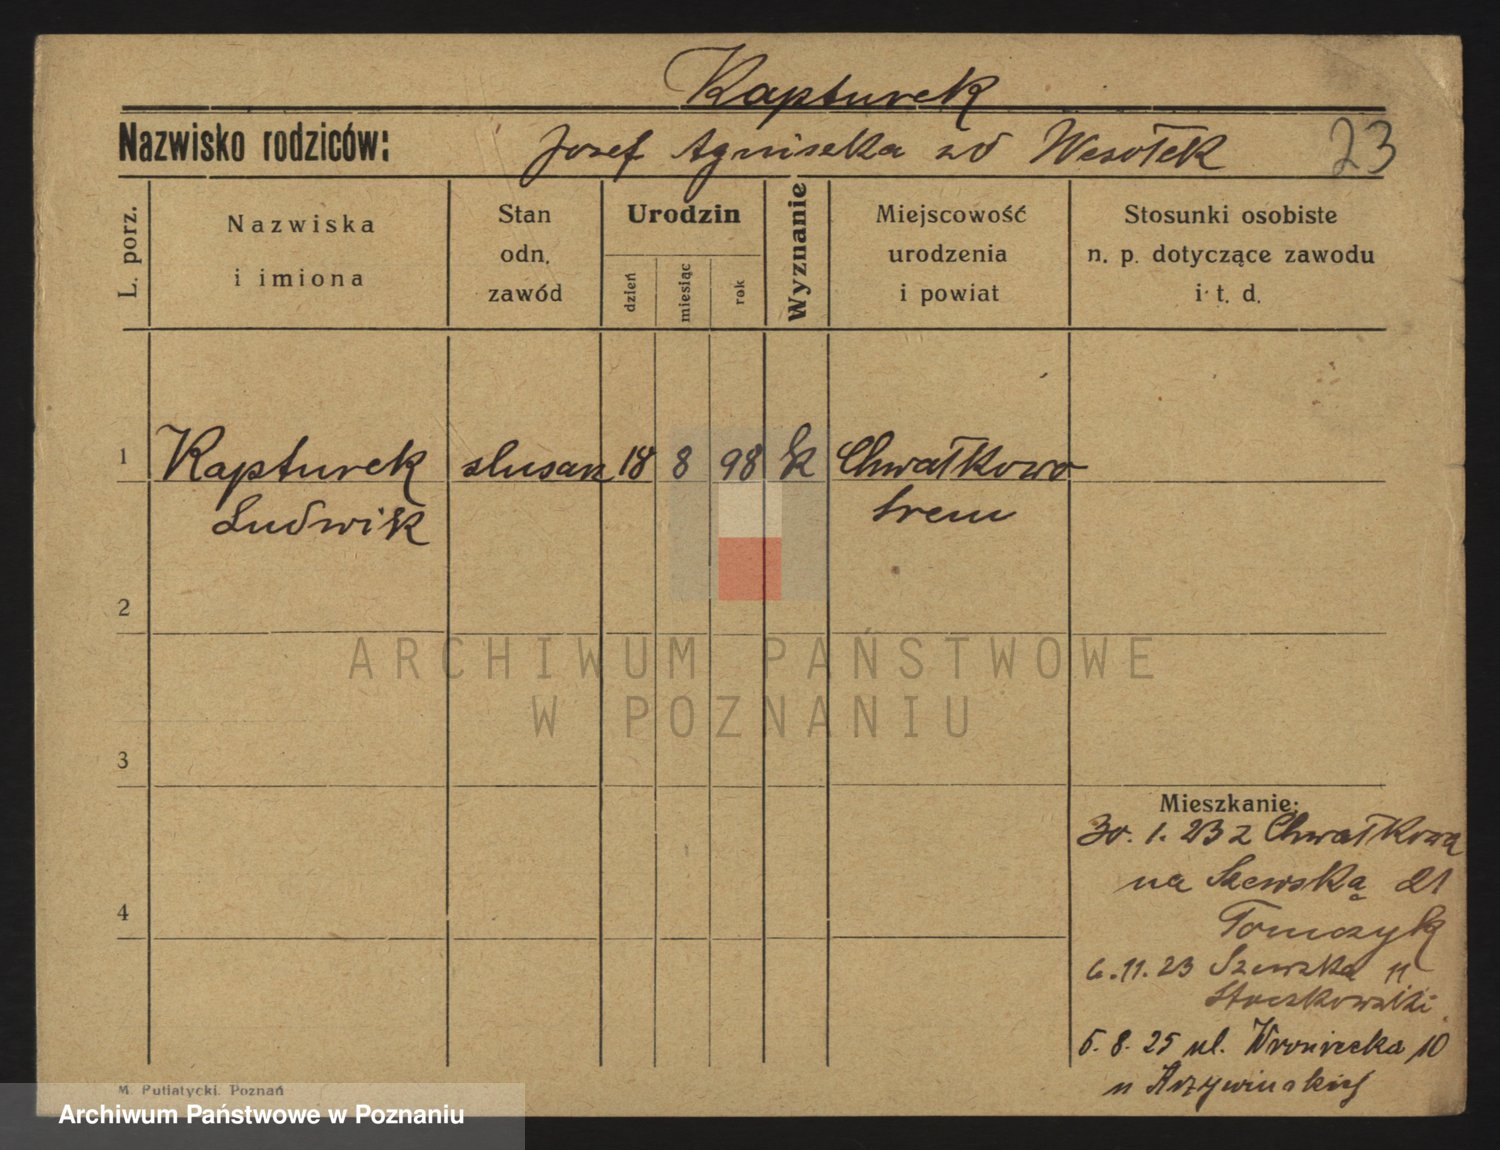 Kapturek
Nazwisko rodziców: Jozef Agniseka zd Wesołek 23
L. porz.
Nazwiska
i imiona
Stan
odn.
zawód
Urodzin
dzień
miesiąc
rok
Wyznanie
Miejscowość
urodzenia
i powiat
Stosunki osobiste
n. p. dotyczące zawodu
i t. d.
1 Kapturek slusarz 18 8 98 k Chwałkowo
Ludwik Srem
2
3
4
Mieszkanie:
30. 1. 23 z Chwałkowa
na Szewską 21
Tomczyk
6. 11. 23 Szewska 11
5. 8. 25 ul. Wroniecka 10
M. Putiatycki. Poznań
ARCHIWUM PAŃSTWOWE
W POZNANIU
Archiwum Państwowe w Poznaniu